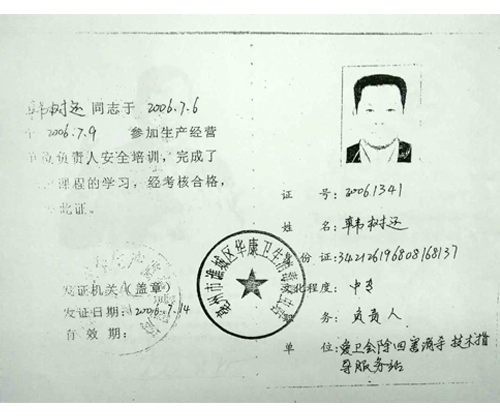 韩树还 同志于 2006.7.6
2006.7.9 参加生产经营
负责人安全培训，完成了
课程的学习，经考核合格，
此证。
发证机关（盖章）
发证日期：2006.7.14
有 效 期：
证 号：20061341
姓 名：韩树还
份 证：342126196808168137
文化程度：中专
务：负责人
单 位：爱卫会除四害消杀技术指
导服务站
亳州市谯城区华康卫生